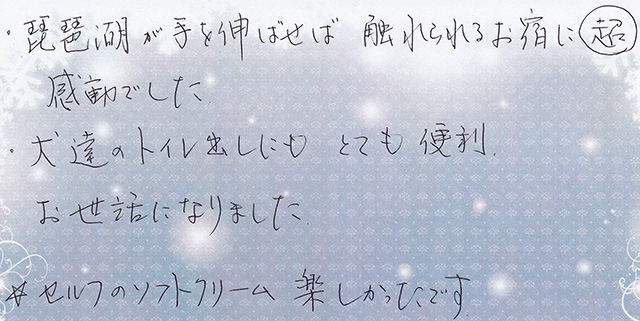 ・琵琶湖が手を伸ばせば 触れられるお宿に超
感動でした
・犬達のトイレ出しにも とても便利.
お世話になりました
☆セルフのソフトクリーム 楽しかったです